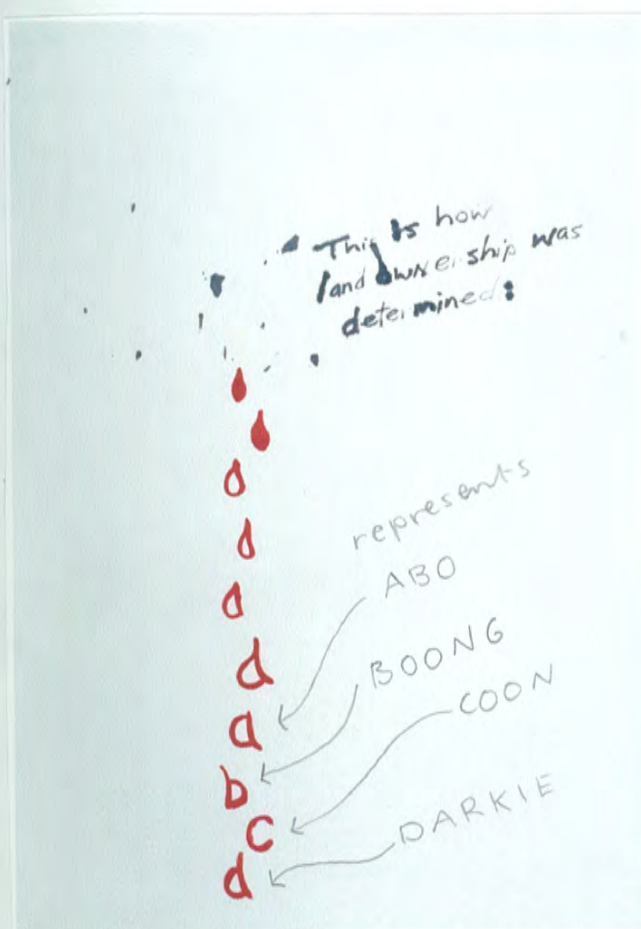 This is how
land ownership was
determined:
represents
d
ABO
a
BOONG
b
COON
c
DARKIE
d